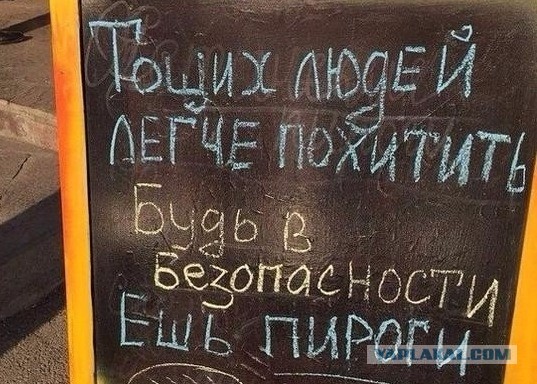 Тощих людей
легче похитить
Будь в
безопасности
Ешь пироги
YAPLAKAL.COM